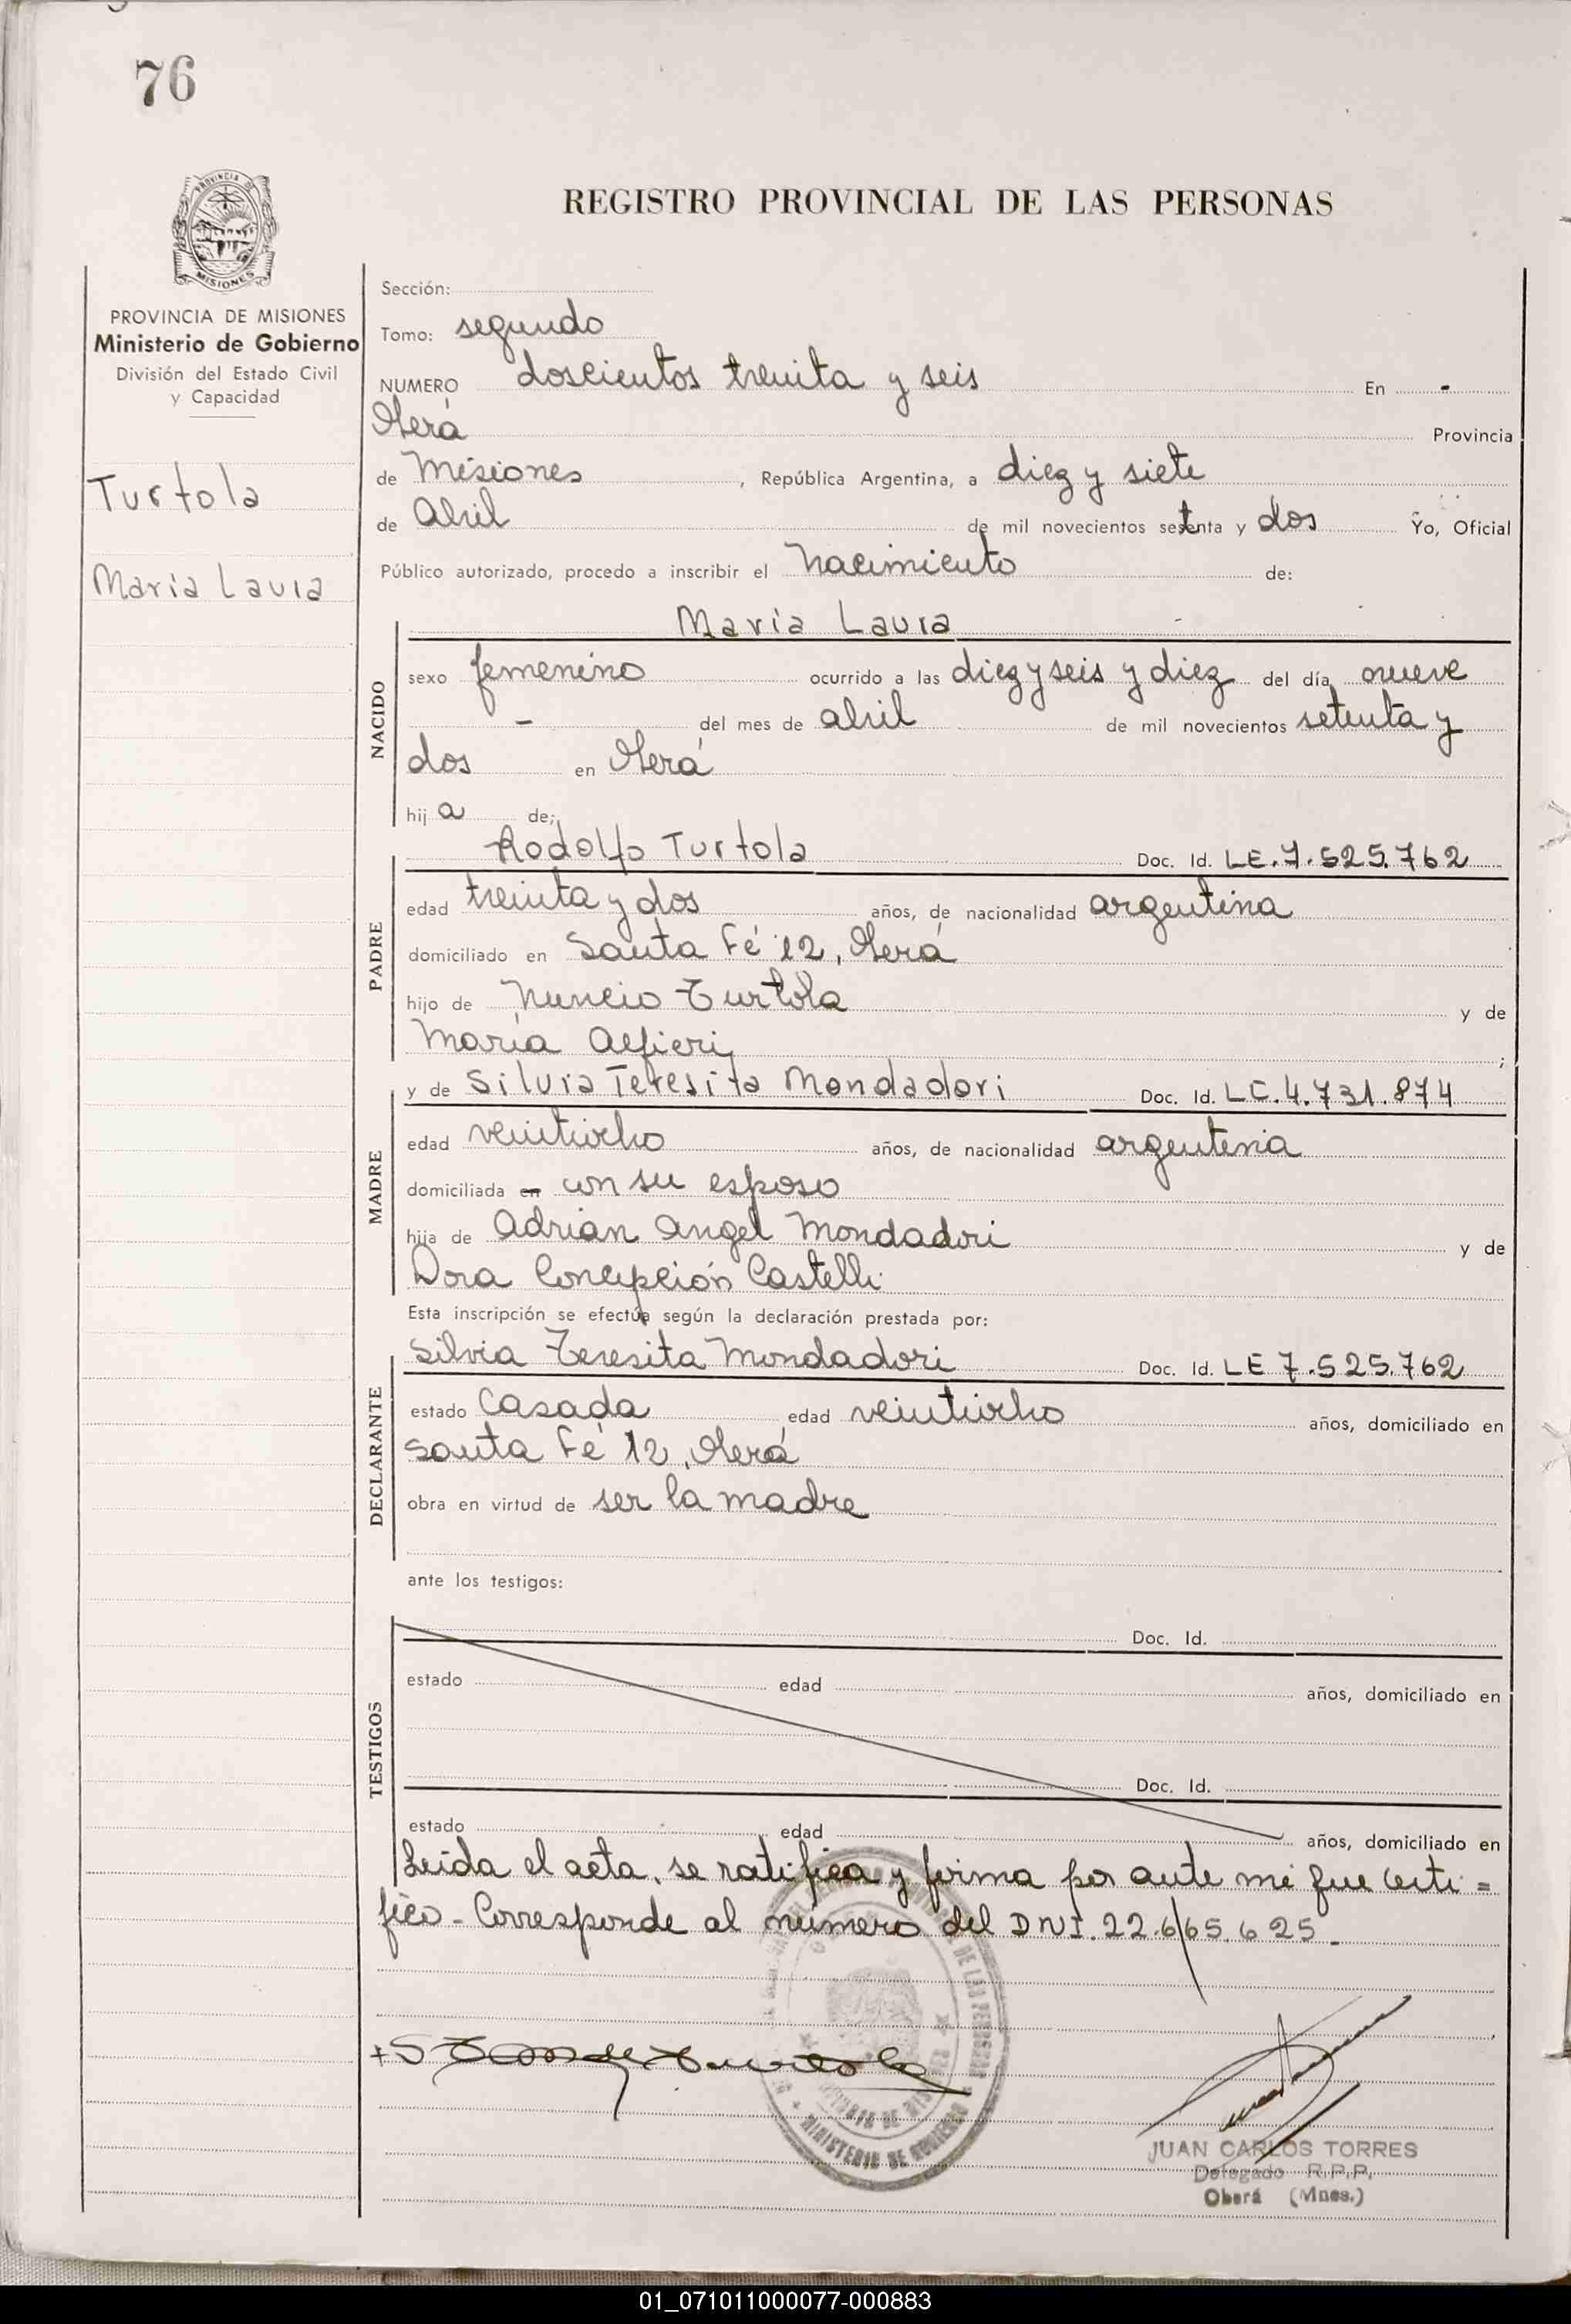 76
REGISTRO PROVINCIAL DE LAS PERSONAS
PROVINCIA DE MISIONES
Ministerio de Gobierno
División del Estado Civil
y Capacidad
Turtola
Maria Laura
Sección:
Tomo: segundo
NUMERO doscientos treinta y seis En -
Oberá Provincia
de Misiones, República Argentina, a diez y siete
de Abril de mil novecientos setenta y dos Yo, Oficial
Público autorizado, procedo a inscribir el nacimiento de:
NACIDO
María Laura
sexo femenino ocurrido a las diez y seis y diez del día nueve
- del mes de abril de mil novecientos setenta y
dos en Oberá
hija de;
PADRE
Rodolfo Turtola Doc. Id. LE.7.525.762
edad treinta y dos años, de nacionalidad argentina
domiciliado en Santa Fé 12, Oberá
hijo de Nuncio Turtola y de
María Alfieri;
MADRE
y de Silvia Teresita Mondadori Doc. Id. LC.4.731.874
edad veintiocho años, de nacionalidad argentina
domiciliada en con su esposo
hija de Adrian Angel Mondadori y de
Dora Concepción Castelli
Esta inscripción se efectúa según la declaración prestada por:
DECLARANTE
Silvia Teresita Mondadori Doc. Id. LE 7.525.762
estado Casada edad veintiocho años, domiciliado en
Santa Fé 12, Oberá
obra en virtud de ser la madre
ante los testigos:
TESTIGOS
Doc. Id.
estado edad años, domiciliado en
Doc. Id.
estado edad años, domiciliado en
Leída el acta, se ratifica y firma por ante mi que certi=
fico - Corresponde al número del DNI. 22.665.625-
MINISTERIO DE GOBIERNO
JUAN CARLOS TORRES
Delegado R.P.P.
Oberá (Mnes.)
01_071011000077-000883